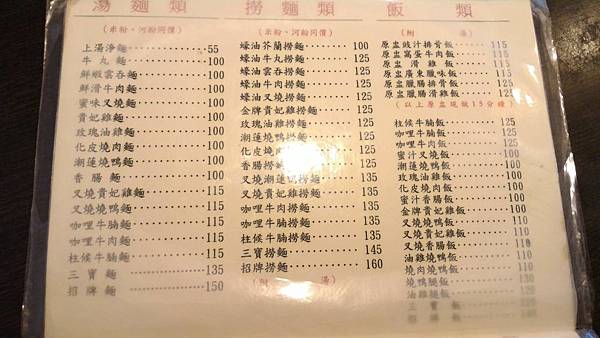 湯麵類
(米粉·河粉同價)
上湯淨麵 55
牛丸麵 100
鮮蝦雲吞麵 100
鮮滑牛肉麵 100
蜜味叉燒麵 100
貴妃雞麵 100
玫瑰油雞麵 100
化皮燒肉麵 100
潮蓮燒鴨麵 100
香腸麵 100
叉燒貴妃雞麵 115
叉燒燒鴨麵 115
咖哩牛腩麵 115
咖哩牛肉麵 115
柱候牛腩麵 115
三寶麵 135
招牌麵 150
撈麵類
(米粉·河粉同價)
蠔油芥蘭撈麵 100
蠔油牛丸撈麵 125
蠔油雲吞撈麵 125
蠔油牛肉撈麵 125
蠔油叉燒撈麵 125
金牌貴妃雞撈麵 125
玫瑰油雞撈麵 125
潮蓮燒鴨撈麵 125
化皮燒肉撈麵 125
香腸撈麵 125
叉燒潮蓮燒鴨撈麵 135
叉燒貴妃雞撈麵 135
咖哩牛肉撈麵 135
咖哩牛腩撈麵 135
柱候牛腩撈麵 135
三寶撈麵 145
招牌撈麵 160
(附湯)
飯類
(附湯)
原盅豉汁排骨飯 115
原盅窩蛋牛肉飯 115
原盅滑雞飯 115
原盅廣東臘味飯 115
原盅臘腸排骨飯 125
原盅臘腸滑雞飯 125
(以上原盅現飯15分鐘)
柱候牛腩飯 125
咖哩牛腩飯 125
咖哩牛肉飯 125
蜜汁叉燒飯 100
潮蓮燒鴨飯 100
玫瑰油雞飯 100
化皮燒肉飯 100
蜜汁香腸飯 100
金牌貴妃雞飯 100
叉燒燒鴨飯 110
叉燒貴妃雞飯 110
叉燒香腸飯 110
油雞燒鴨飯 110
燒肉燒鴨飯 110
燒鴨腿飯 110
油雞腿飯 110
三寶飯
招牌飯